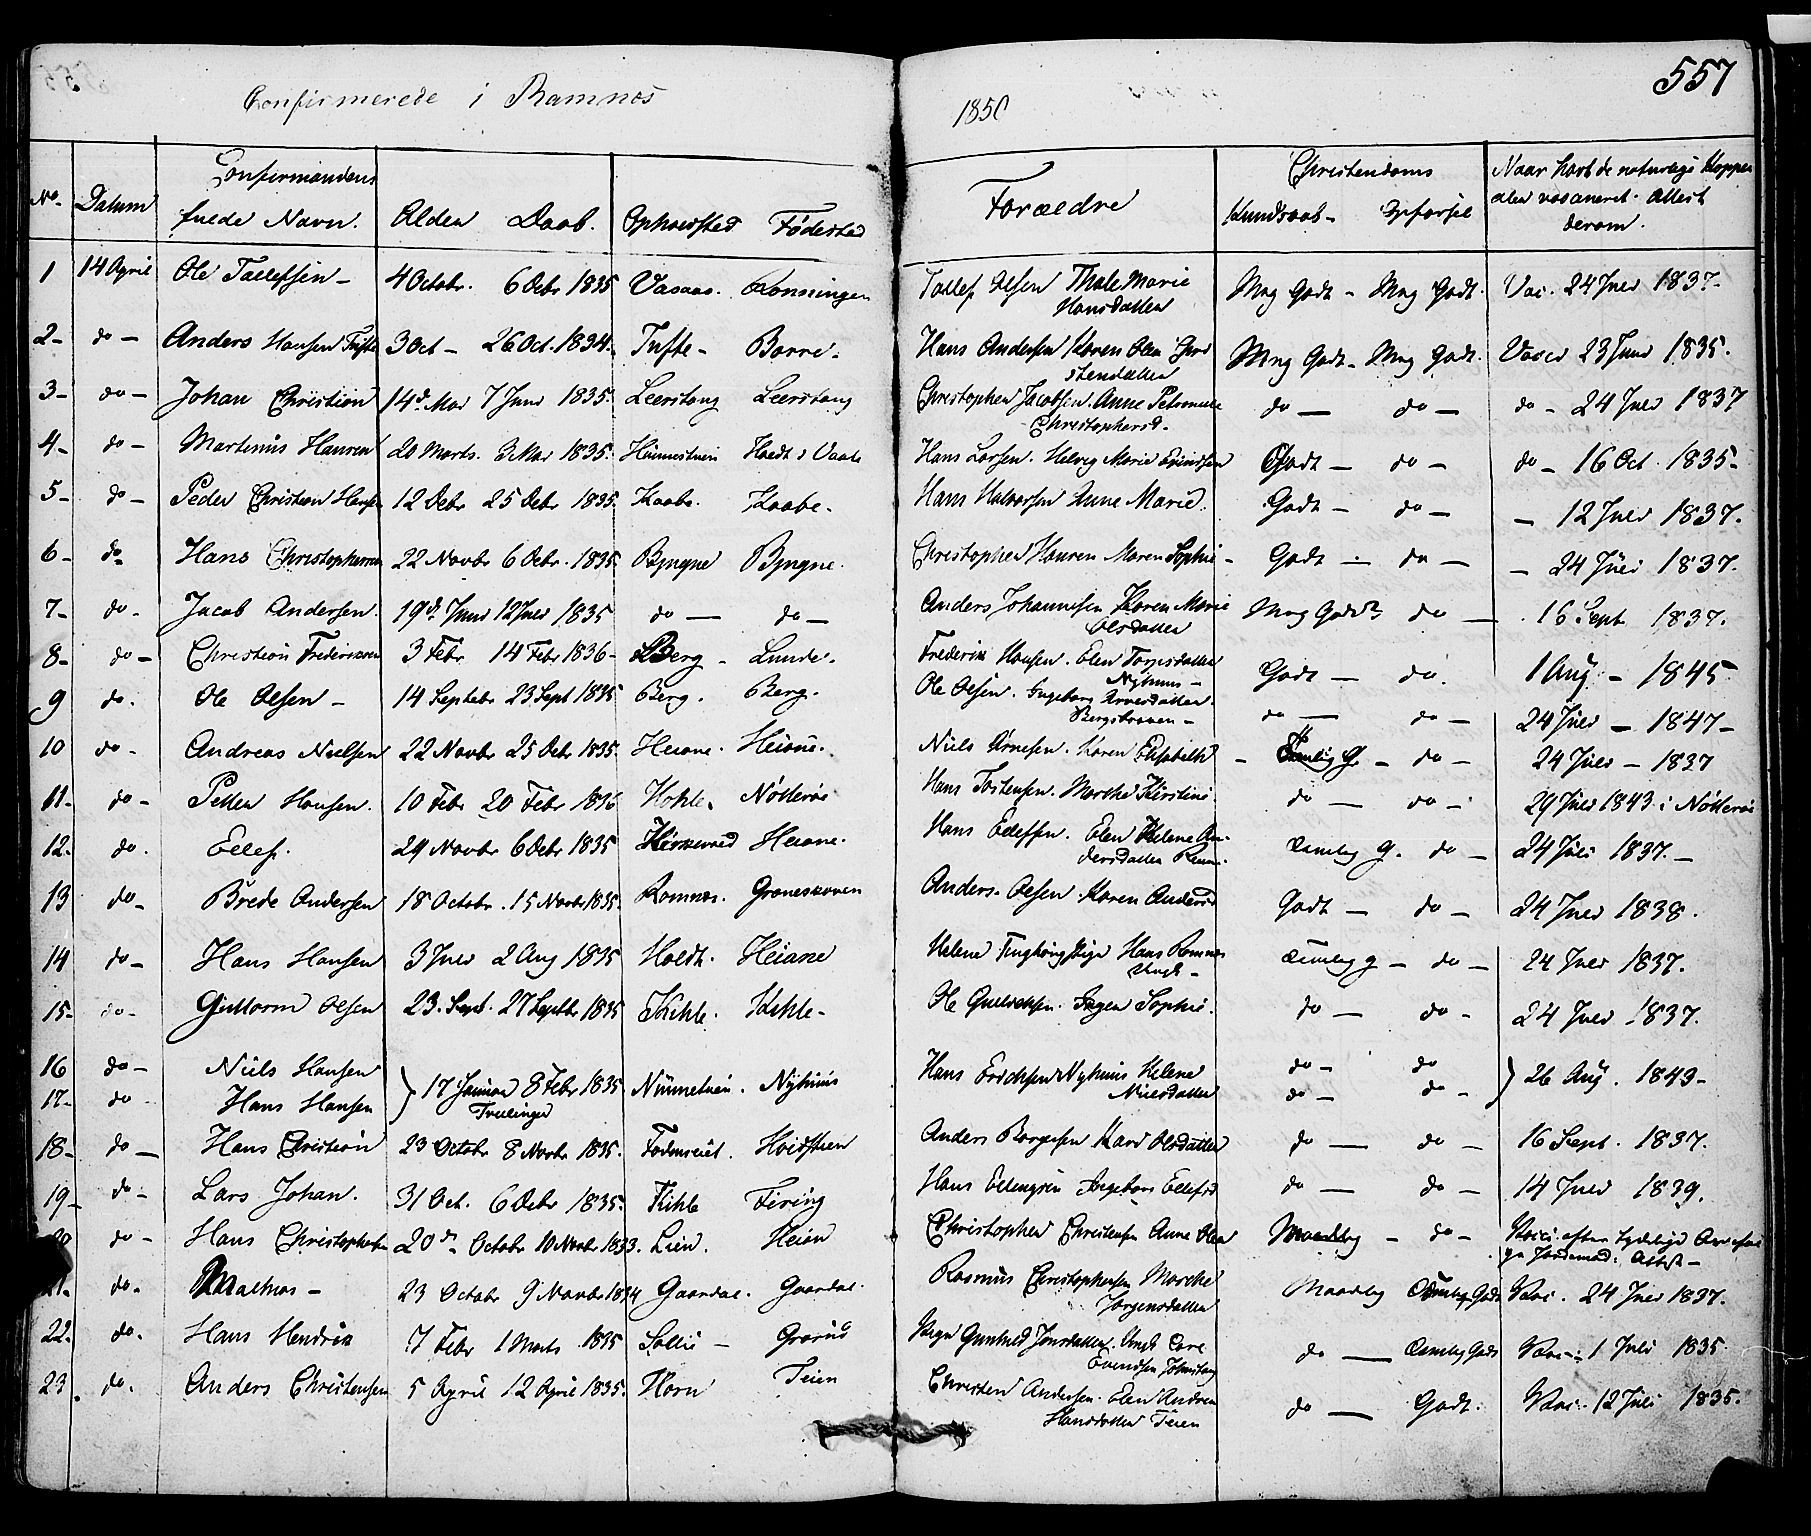 Confirmerede i Ramnæs 1850 557
No. Datum Confirmandens fulde Navn. Alder Daab. Opholdsted Fødested Forældre Christendoms Kundskab - Opførsel Naar havt de naturlige Kopper eller vaccineret. Attest derom.
1 14 April Ole Tallefsen - 4 Octobr. 6 Debr 1835 Vasaas. Rønningen Tollef Olsen Thale Marie Hansdatter Mng Godt - Mng Godt. Vac. 24 Juli 1837-
2- do - Anders Hansen Tufte 3 Oct - 26 Oct. 1834. Tufte - Borre. Hans Andersen Karen Olea Mng Godt - Mng Godt. Vacc 23 Juni 1835.
3- do - Johan Christian 14d. Mai 7 Juni 1835. Leerstang Leerstang Christopher Jacobsen. Anne Petronelle Christophersd. do - do - do - 24 Juli 1837
4- do - Martinus Hansen 20 Marts. 3 Mai 1835. Hoedt i Vaale Hans Larsen. Helvig Marie Godt - do - do - 16 Oct. 1835-
5- do - Peder Christian Hansen 12 Debr 25 Debr 1835. Kaabe. Kaabe. Hans Halvorsen Anne Marie. Godt - do - - 12 Juli 1837.
6- do - Hans Christophersen 22 Novbr 6 Debr. 1835 Bjugne Bjugne. Christopher Hansen Maren Sophie - Godt - do - - 24 Juli 1837.
7- do - Jacob Andersen. 19d. Juni 12 Juli 1835 do - do - Anders Johannesen Karen Marie Olsdatter Mng Godt do - . 16 Sept 1837.
8- do - Christian Frederiksen 3 Febr 14 Febr 1836- Berg - Lunde. Frederik Hansen. Elen Nyhuus - Godt - do. 1 Aug - 1845
9 do. Ole Olsen - 14 Septebr 23 Sept 1835 Berg. Berg. Ole Olsen. Ingeborg do - do - 24 Juli - 1847-
10 do - Andreas Nielsen 22 Novbr 25 Debr 1835. Heiane. Heiane. Niels Arnesen. Karen Elisabeth - Temlig G. - do - 24 Juli - 1837
11- do - Petter Hansen. 10 Febr 20 Febr 1836 Nøtterøe Hans Tostensen. Marthe Kirstine. do - do - 29 Juli 1843 i Nøtterøe
12- do. Ellef. 29 Novbr 6 Debr 1835 Heiane. Hans Ellefsen. Elen Helene Andersdatter temlig G. do - 24 Juli 1837.-
13 do - Brede Andersen 18 Octobr. 15 Novbr 1835. Ramnæs. Graneskoven Anders Olsen. Karen Andersd Godt - do - 24 Juli 1838.
14 do - Hans Hansen 3 Juli 2 Aug 1835 Hoedt. Heiane Helene Pige Hans Ramnæs Ungk - temlig g - do - 24 Juli 1837.
15- do - Guttorm Olsen 23. Sept. 27 Septbr 1835 Kihle. Kihle - Ole Inger Sophie. do - do - 24 Juli 1837.
16 do - Niels Hansen
17- do - Hans Hansen } 17 Januar 8 Febr 1835 Tvillinger Nyhuus Hans Nyhuus Helene Nielsdatter do - do do - do - } 26 Aug. 1843-
18- do - Hans Christian 23 Octobr 8 Novbr 1835. Hvidsteen Anders Borgersen Kari Olsdatter do - do - 16 Sept. 1837.
19- do - Lars Johan. 31 Oct. 6 Debr 1835. Kihle Firing Hans Ellingsen Ingeborg Ellefsd do - do - 14 Juli 1839.
20 do - Hans Christophersen 20d. Octobr 10 Novbr 1833. Lien. Heian Christopher Christensen Anne Olea Maadelig - do - Vacci. efter tydelige Ar Attest -
21- do - Mathias - 23 Octobr 9 Novbr 1834 Gaardal. Gaardal. Rasmus Christophersen Marthe Jørgensdatter Maadelig temlig Godt Vaci. 24 Juli 1837.
22- do. Hans Hendrik 7 Febr 1 Marts 1835 Sollie - Grorud Pige Gunhild Jonsdatter. Ungk do - temlig Godt Vaci. 1 Juli 1835.
23 do. Anders Christensen 5 April 12 April 1835. Horn Teien Christen Andersen. Elen Andrea Hansdatter Teien do - Godt. Vaci. 12 Juli 1835.